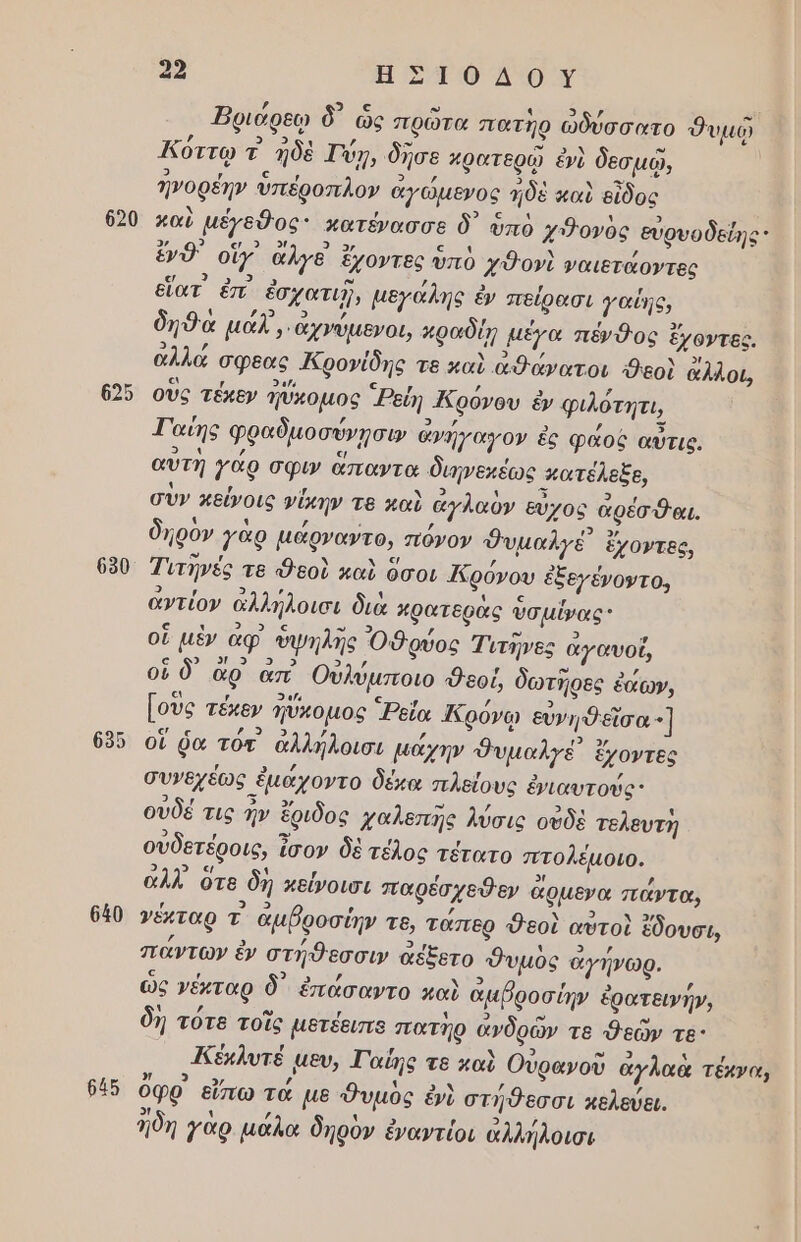 22 ΗΣΙΟΔΟΥ
Βριάρεῳ δ᾽ ὡς πρῶτα πατὴρ ὠδύσσατο θυμῷ
Κόττῳ τ᾽ ἠδὲ Γύῃ, δῆσε κρατερῷ ἐνὶ δεσμῷ,
ἠνορέην ὑπέροπλον ἀγώμενος ἠδὲ καὶ εἶδος
620 καὶ μέγεθος· κατένασσε δ᾽ ὑπὸ χθονὸς εὐρυοδείης·
ἔνθ᾽ οἵγ᾽ ἄλγε᾽ ἔχοντες ὑπὸ χθονὶ ναιετάοντες
εἵατ᾽ ἐπ᾽ ἐσχατιῇ, μεγάλης ἐν πείρασι γαίης,
δηθὰ μάλ᾽, ἀχνύμενοι, κραδίῃ μέγα πένθος ἔχοντες.
ἀλλά σφεας Κρονίδης τε καὶ ἀθάνατοι θεοὶ ἄλλοι,
625 οὓς τέκεν ἠΰκομος Ῥείη Κρόνου ἐν φιλότητι,
Γαίης φραδμοσύνῃσιν ἀνήγαγον ἐς φάος αὖτις.
αὐτὴ γάρ σφιν ἅπαντα διηνεκέως κατέλεξε,
σὺν κείνοις νίκην τε καὶ ἀγλαὸν εὖχος ἀρέσθαι.
δηρὸν γὰρ μάρναντο, πόνον θυμαλγέ᾽ ἔχοντες,
630 Τιτῆνές τε θεοὶ καὶ ὅσοι Κρόνου ἐξεγένοντο,
ἀντίον ἀλλήλοισι διὰ κρατερὰς ὑσμίνας·
οἱ μὲν ἀφ᾽ ὑψηλῆς Ὄθρυος Τιτῆνες ἀγαυοί,
οἱ δ᾽ ἄρ᾽ ἀπ᾽ Οὐλύμποιο θεοί, δωτῆρες ἐάων,
[οὓς τέκεν ἠΰκομος Ῥεία Κρόνῳ εὐνηθεῖσα·]
635 οἵ ῥα τότ᾽ ἀλλήλοισι μάχην θυμαλγέ᾽ ἔχοντες
συνεχέως ἐμάχοντο δέκα πλείους ἐνιαυτούς·
οὐδέ τις ἦν ἔριδος χαλεπῆς λύσις οὐδὲ τελευτὴ
οὐδετέροις, ἶσον δὲ τέλος τέτατο πτολέμοιο.
ἀλλ᾽ ὅτε δὴ κείνοισι παρέσχεθεν ἄρμενα πάντα,
640 νέκταρ τ᾽ ἀμβροσίην τε, τάπερ θεοὶ αὐτοὶ ἔδουσι,
πάντων ἐν στήθεσσιν ἀέξετο θυμὸς ἀγήνωρ.
ὡς νέκταρ δ᾽ ἐπάσαντο καὶ ἀμβροσίην ἐρατεινήν,
δὴ τότε τοῖς μετέειπε πατὴρ ἀνδρῶν τε θεῶν τε·
Κέκλυτέ μευ, Γαίης τε καὶ Οὐρανοῦ ἀγλαὰ τέκνα,
645 ὄφρ᾽ εἴπω τά με θυμὸς ἐνὶ στήθεσσι κελεύει.
ἤδη γὰρ μάλα δηρὸν ἐναντίοι ἀλλήλοισι